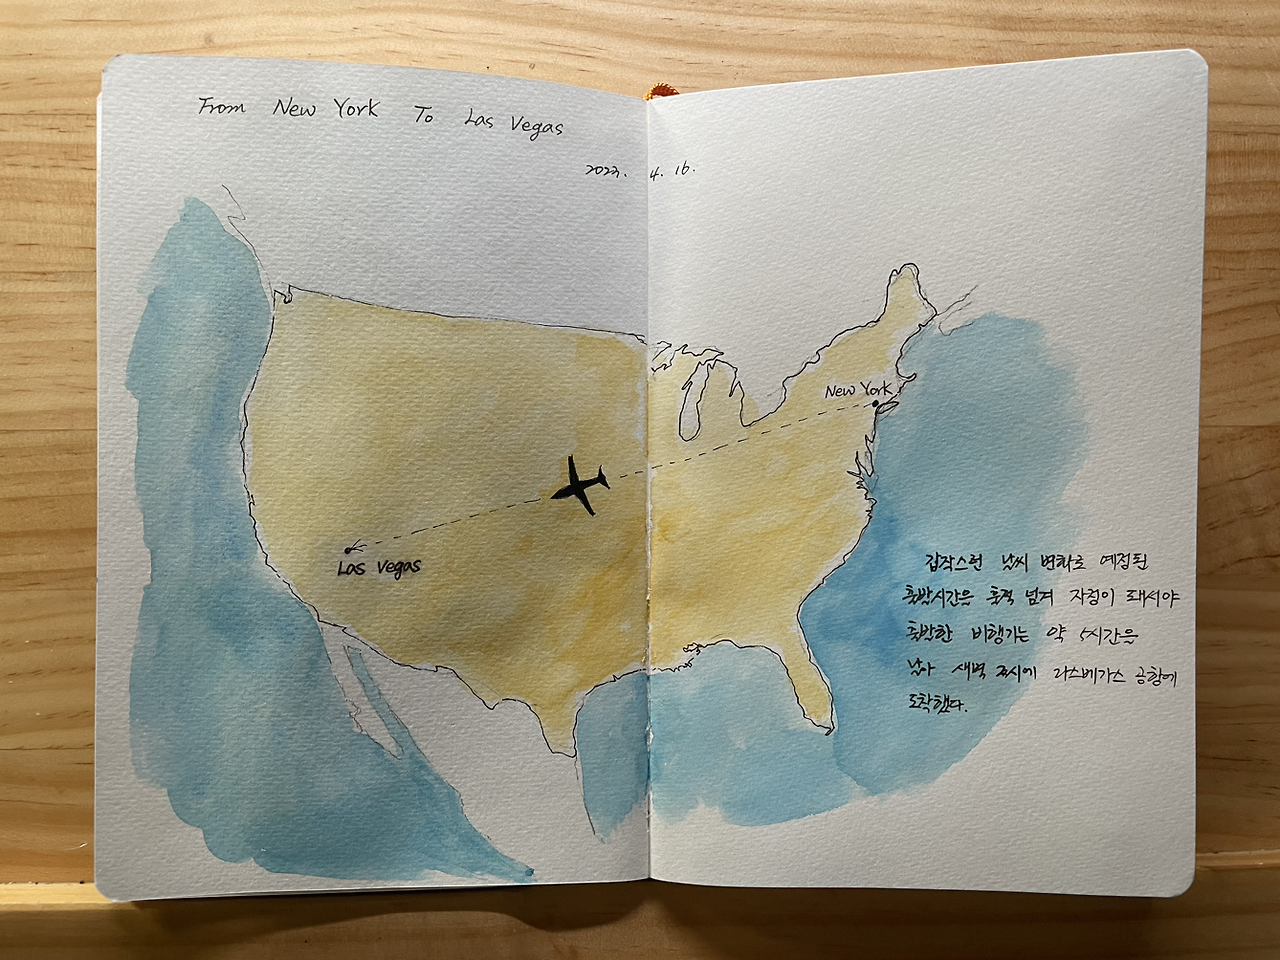 From New York To Las Vegas
2023. 4. 16.
New York
Las Vegas
갑작스런 날씨 변화로 예정된
출발시간은 훌쩍 넘겨 자정이 돼서야
출발한 비행기는 약 5시간을
날아 새벽 2시에 라스베가스 공항에
도착했다.